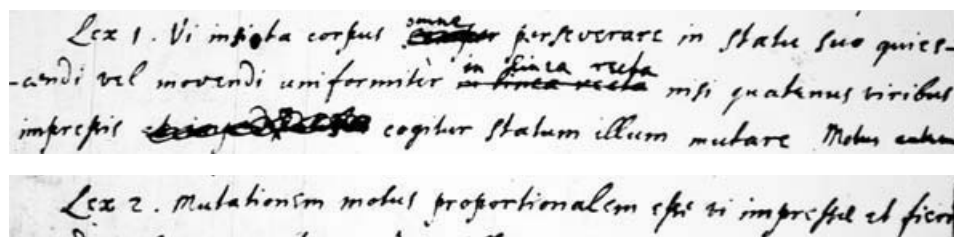 Lex 1. Vi insita corpus omne perseverare in statu suo quies-
-cendi vel movendi uniformitèr in linea recta nisi quatenus viribus
impressis cogitur statum illum mutare Motus autem
Lex 2. Mutationem motus proportionalem esse vi impressæ et fieri